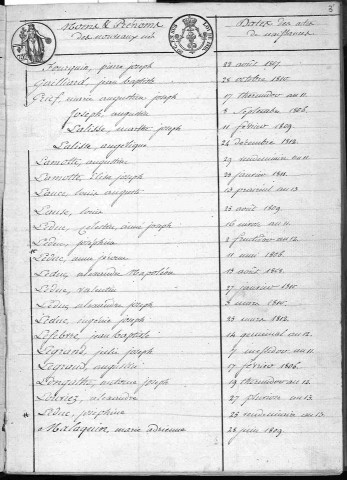 3
Noms & Prénoms
des nouveaux nés
Dates des actes
de naissances
Fourquin, pierre joseph 22 août 1807.
Guilliard, jean baptiste 28 octobre 1810.
Grief, marie augustine joseph 17 thermidor an 11.
joseph, augustin 3 septembre 1806.
Lalisse, marthe joseph 11 février 1809.
Lalisse, angélique 24 décembre 1812.
Lamotte, augustin 29 vendémiaire an 11.
Lamotte, élise joseph 23 janvier 1811.
Lance, louis auguste 13 prairial an 13
Lause, louis 23 août 1809.
Leduc, Celestin aimé joseph 16 nivose an 11.
Leduc, josephine 2 fructidor an 12.
Leduc, aimé jerome 11 mai 1808.
Leduc, alexandre Napoléon 15 août 1808.
Leduc, valentin 27 janvier 1810.
Leduc, alexandre joseph 3 mars 1810.
Leduc, eugénie joseph 23 mars 1812.
Lefebvre, jean baptiste 14 germinal an 12.
Legrand, julie joseph 7 messidor an 11.
Legrand, 17 février 1806.
Lenquette, antoine joseph 19 thermidor an 12.
Loivriez, alexandre 27 pluviose an 13.
Leduc, josephine 23 vendémiaire an 13.
Malaquin, marie adrienne 28 juin 1809.